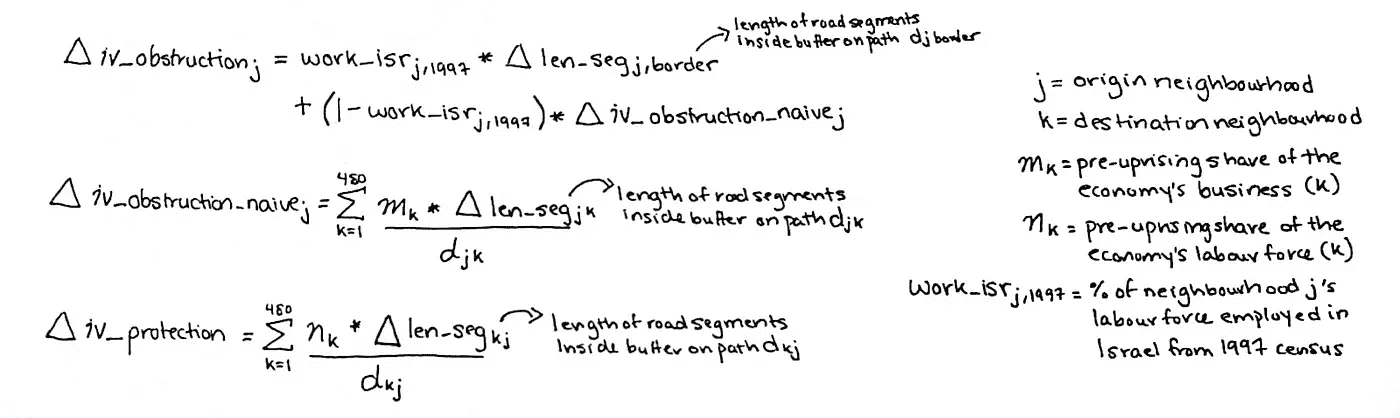 Δ iv_obstruction_j = work_isr_j,1997 * Δ len-seg_j,border
length of road segments
inside buffer on path dj border
+ (1-work_isr_j,1997) * Δ iv_obstruction_naive_j
Δ iv_obstruction_naive_j = Σ_{k=1}^{480} m_k * Δ len-seg_jk / d_jk
length of road segments
inside buffer on path d_jk
Δ iv_protection = Σ_{k=1}^{480} n_k * Δ len-seg_kj / d_kj
length of road segments
inside buffer on path d_kj
j = origin neighbourhood
k = destination neighbourhood
m_k = pre-uprising share of the
economy's business (k)
n_k = pre-uprising share of the
economy's labour force (k)
work_isr_j,1997 = % of neighbourhood j's
labour force employed in
Israel from 1997 census